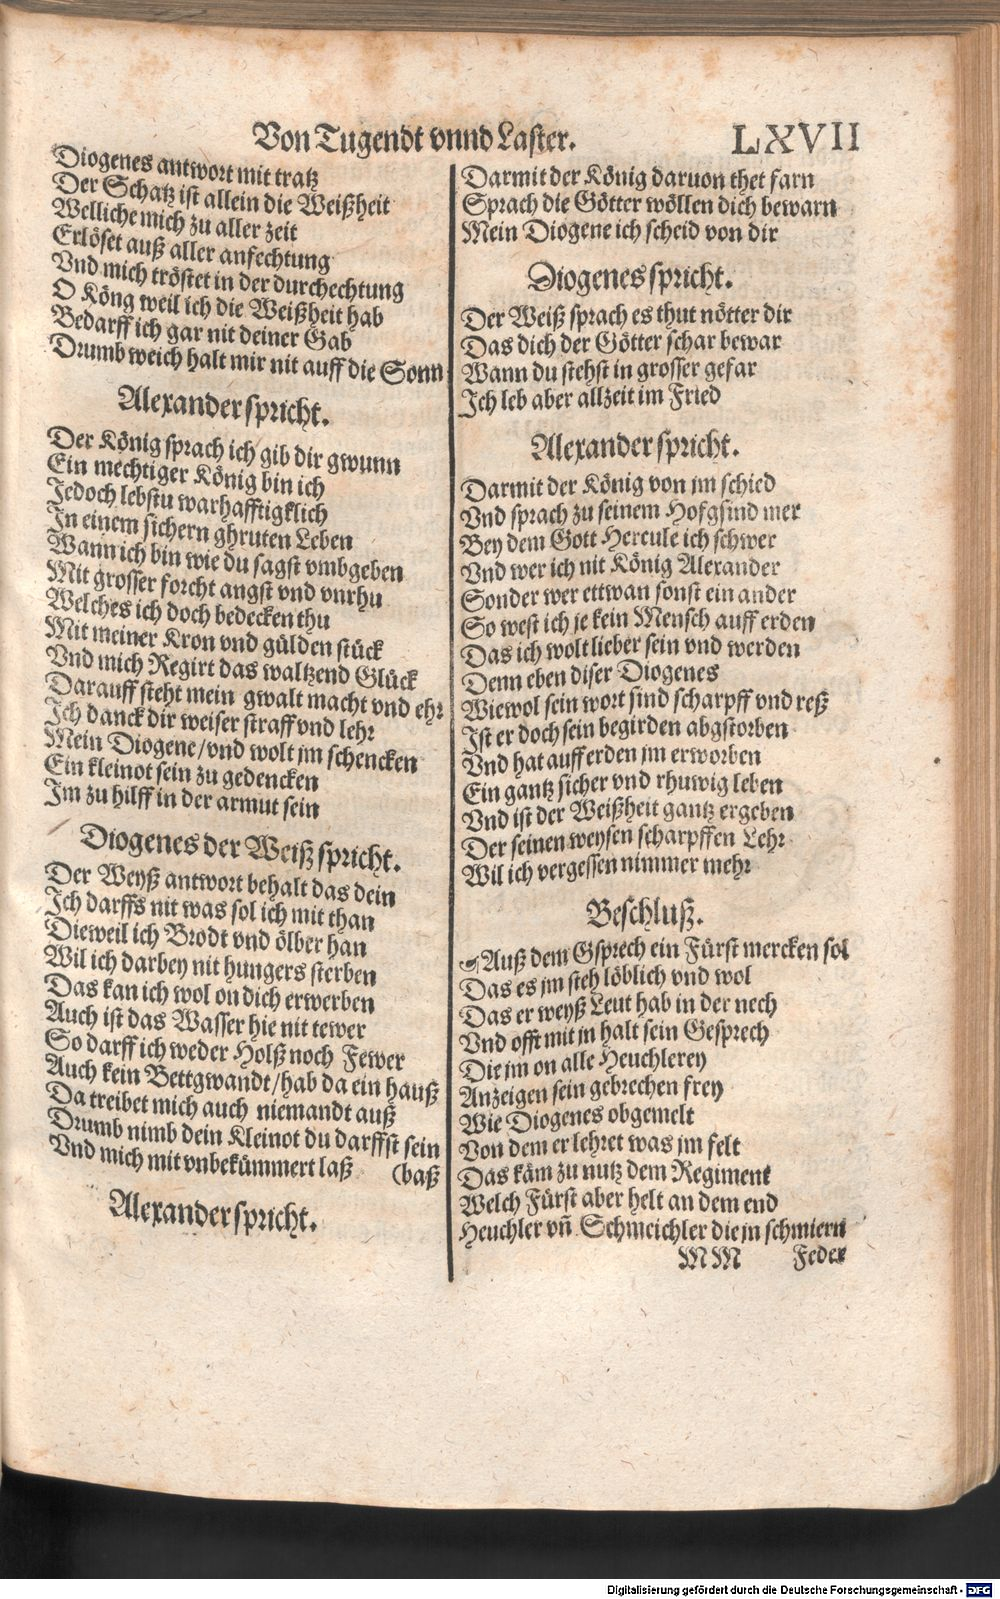 Von Tugendt vnnd Laster. LXVII
Diogenes antwort mit tratz
Der Schatz ist allein die Weißheit
Welliche mich zu aller zeit
Erlöset auß aller anfechtung
Vnd mich tröstet in der durchechtung
O Köng weil ich die Weißheit hab
Bedarff ich gar nit deiner Gab
Drumb weich halt mir nit auff die Sonn
Alexander spricht.
Der König sprach ich gib dir gwunn
Ein mechtiger König bin ich
Jedoch lebstu warhafftigklich
In einem sichern ghruten Leben
Wann ich bin wie du sagst vmbgeben
Mit grosser forcht angst vnd vnrhu
Welches ich doch bedecken thu
Mit meiner Kron vnd gülden stück
Vnd mich Regirt das waltzend Glück
Darauff steht mein gwalt macht vnd ehr
Ich danck dir weiser straff vnd lehr
Mein Diogene/vnd wolt jm schencken
Ein kleinot sein zu gedencken
Im zu hilff in der armut sein
Diogenes der Weiß spricht.
Der Weyß antwort behalt das dein
Ich darffs nit was sol ich mit than
Dieweil ich Brodt vnd ölber han
Wil ich darbey nit hungers sterben
Das kan ich wol on dich erwerben
Auch ist das Wasser hie nit tewer
So darff ich weder Holß noch Fewer
Auch kein Bettgwandt/hab da ein hauß
Da treibet mich auch niemandt auß
Drumb nimb dein Kleinot du darffst sein
Vnd mich mit vnbekümmert laß (baß
Alexander spricht.
Darmit der König daruon thet farn
Sprach die Götter wöllen dich bewarn
Mein Diogene ich scheid von dir
Diogenes spricht.
Der Weiß sprach es thut nötter dir
Das dich der Götter schar bewar
Wann du stehst in grosser gefar
Ich leb aber allzeit im Fried
Alexander spricht.
Darmit der König von jm schied
Vnd sprach zu seinem Hofgsind mer
Bey dem Gott Hercule ich schwer
Vnd wer ich nit König Alexander
Sonder wer ettwan sonst ein ander
So west ich je kein Mensch auff erden
Das ich wolt lieber sein vnd werden
Denn eben diser Diogenes
Wiewol sein wort sind scharpff vnd reß
Ist er doch sein begirden abgstorben
Vnd hat auff erden jm erworben
Ein gantz sicher vnd rhuwig leben
Vnd ist der Weißheit gantz ergeben
Der seinen weysen scharpffen Lehr
Wil ich vergessen nimmer mehr
Beschluß.
Auß dem Gsprech ein Fürst mercken sol
Das es jm steh löblich vnd wol
Das er weyß Leut hab in der nech
Vnd offt mit jn halt sein Gesprech
Die jm on alle Heuchlerey
Anzeigen sein gebrechen frey
Wie Diogenes obgemelt
Von dem er lehret was jm felt
Das käm zu nutz dem Regiment
Welch Fürst aber helt an dem end
Heuchler vñ Schmeichler die jn schmiern
MM Feder
Digitalisierung gefördert durch die Deutsche Forschungsgemeinschaft - DFG